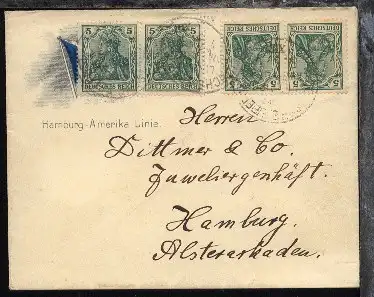 5 5 5 5
DEUTSCHES REICH DEUTSCHES REICH DEUTSCHES REICH DEUTSCHES REICH
Hamburg-Amerika Linie.
Herren
Dittmer & Co.
Juweliergenhäft.
Hamburg.
Alsterarkaden.